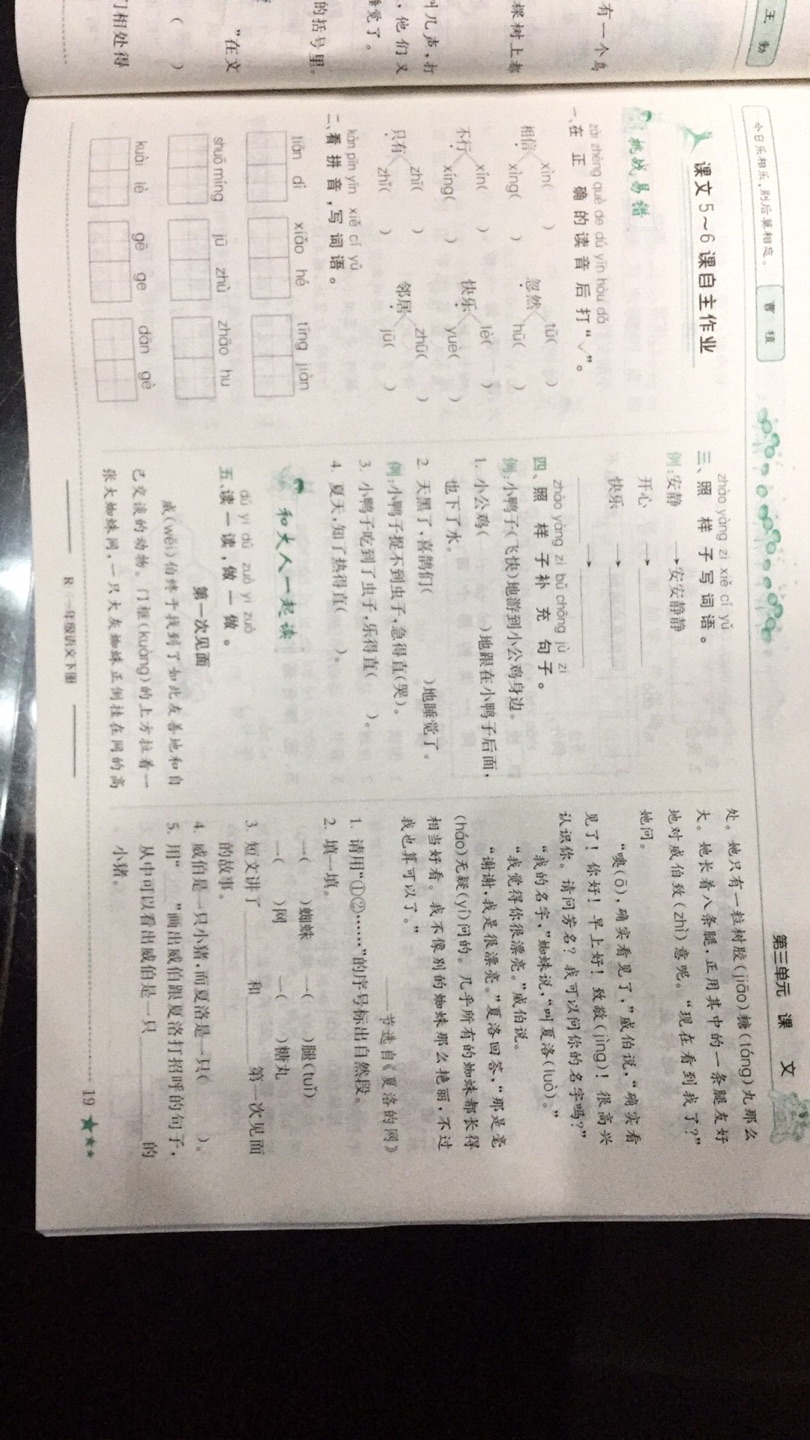 王 勃
有一个鸟
棵树上都
叫几声,打
,他们又
睡觉了。
的括号里。
”在文
( )
们相处得
今日乐相乐,别后莫相忘。
曹 植
第三单元 课 文
课文5~6课自主作业
挑战易错
zài zhèng què de dú yīn hòu dǎ
一、在正确的读音后打“✓”。
相信 xìn( ) xìng( )
忽然 tū( ) hū( )
不行 xín( ) xíng( )
快乐 lè( ) yuè( )
只有 zhī( ) zhǐ( )
邻居 zhū( ) jū( )
kàn pīn yīn xiě cí yǔ
二、看拼音,写词语。
tiān dì xiǎo hé tīng jiàn
shuō míng jū zhù zhāo hu
kuài lè gē ge dān gè
zhào yàng zi xiě cí yǔ
三、照样子写词语。
例:安静→安安静静
开心→
快乐→
→
zhào yàng zi bǔ chōng jù zi
四、照样子补充句子。
例:小鸭子(飞快)地游到小公鸡身边。
1. 小公鸡( )地跟在小鸭子后面,
也下了水。
2. 天黑了,喜鹊们( )地睡觉了。
例:小鸭子捉不到虫子,急得直(哭)。
3. 小鸭子吃到了虫子,乐得直( )。
4. 夏天,知了热得直( )。
和大人一起读
dú yi dú zuò yi zuò
五、读一读,做一做。
第一次见面
威(wēi)伯终于找到了如此友善地和自
己交谈的动物。门框(kuàng)的上方拉着一
张大蜘蛛网,一只大灰蜘蛛正倒挂在网的高
处。她只有一粒树胶(jiāo)糖(táng)丸那么
大。她长着八条腿,正用其中的一条腿友好
地对威伯致(zhì)意呢。“现在看到我了?”
她问。
“噢(ō),确实看见了,”威伯说,“确实看
见了!你好!早上好!致敬(jìng)!很高兴
认识你。请问芳名?我可以问你的名字吗?”
“我的名字,”蜘蛛说,“叫夏洛(luò)。”
“我觉得你很漂亮。”威伯说。
“谢谢,我是很漂亮。”夏洛回答,“那是毫
(háo)无疑(yí)问的。几乎所有的蜘蛛都长得
相当好看。我不像别的蜘蛛那么艳丽,不过
我也算可以了。”
——节选自《夏洛的网》
1. 请用“①②……”的序号标出自然段。
2. 填一填。
一( )蜘蛛 一( )腿(tuǐ)
一( )网 一( )糖丸
3. 短文讲了____和____第一次见面
的故事。
4. 威伯是一只小猪,而夏洛是一只( )。
5. 用“__”画出威伯跟夏洛打招呼的句子,
从中可以看出威伯是一只____的
小猪。
R 一年级语文下册
19